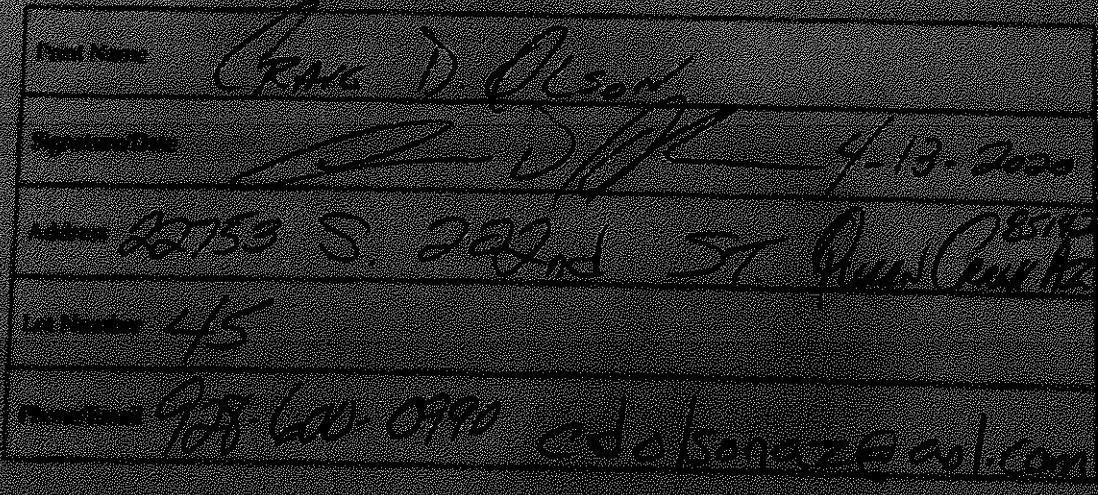 Print Name CRAIG D. OLSON
Signature/Date 4-13-2020
Address 22753 S. 222nd ST Queen Creek AZ 85142
Lot Number 45
Phone/Email 928-600-0990 cdolsonaz@aol.com